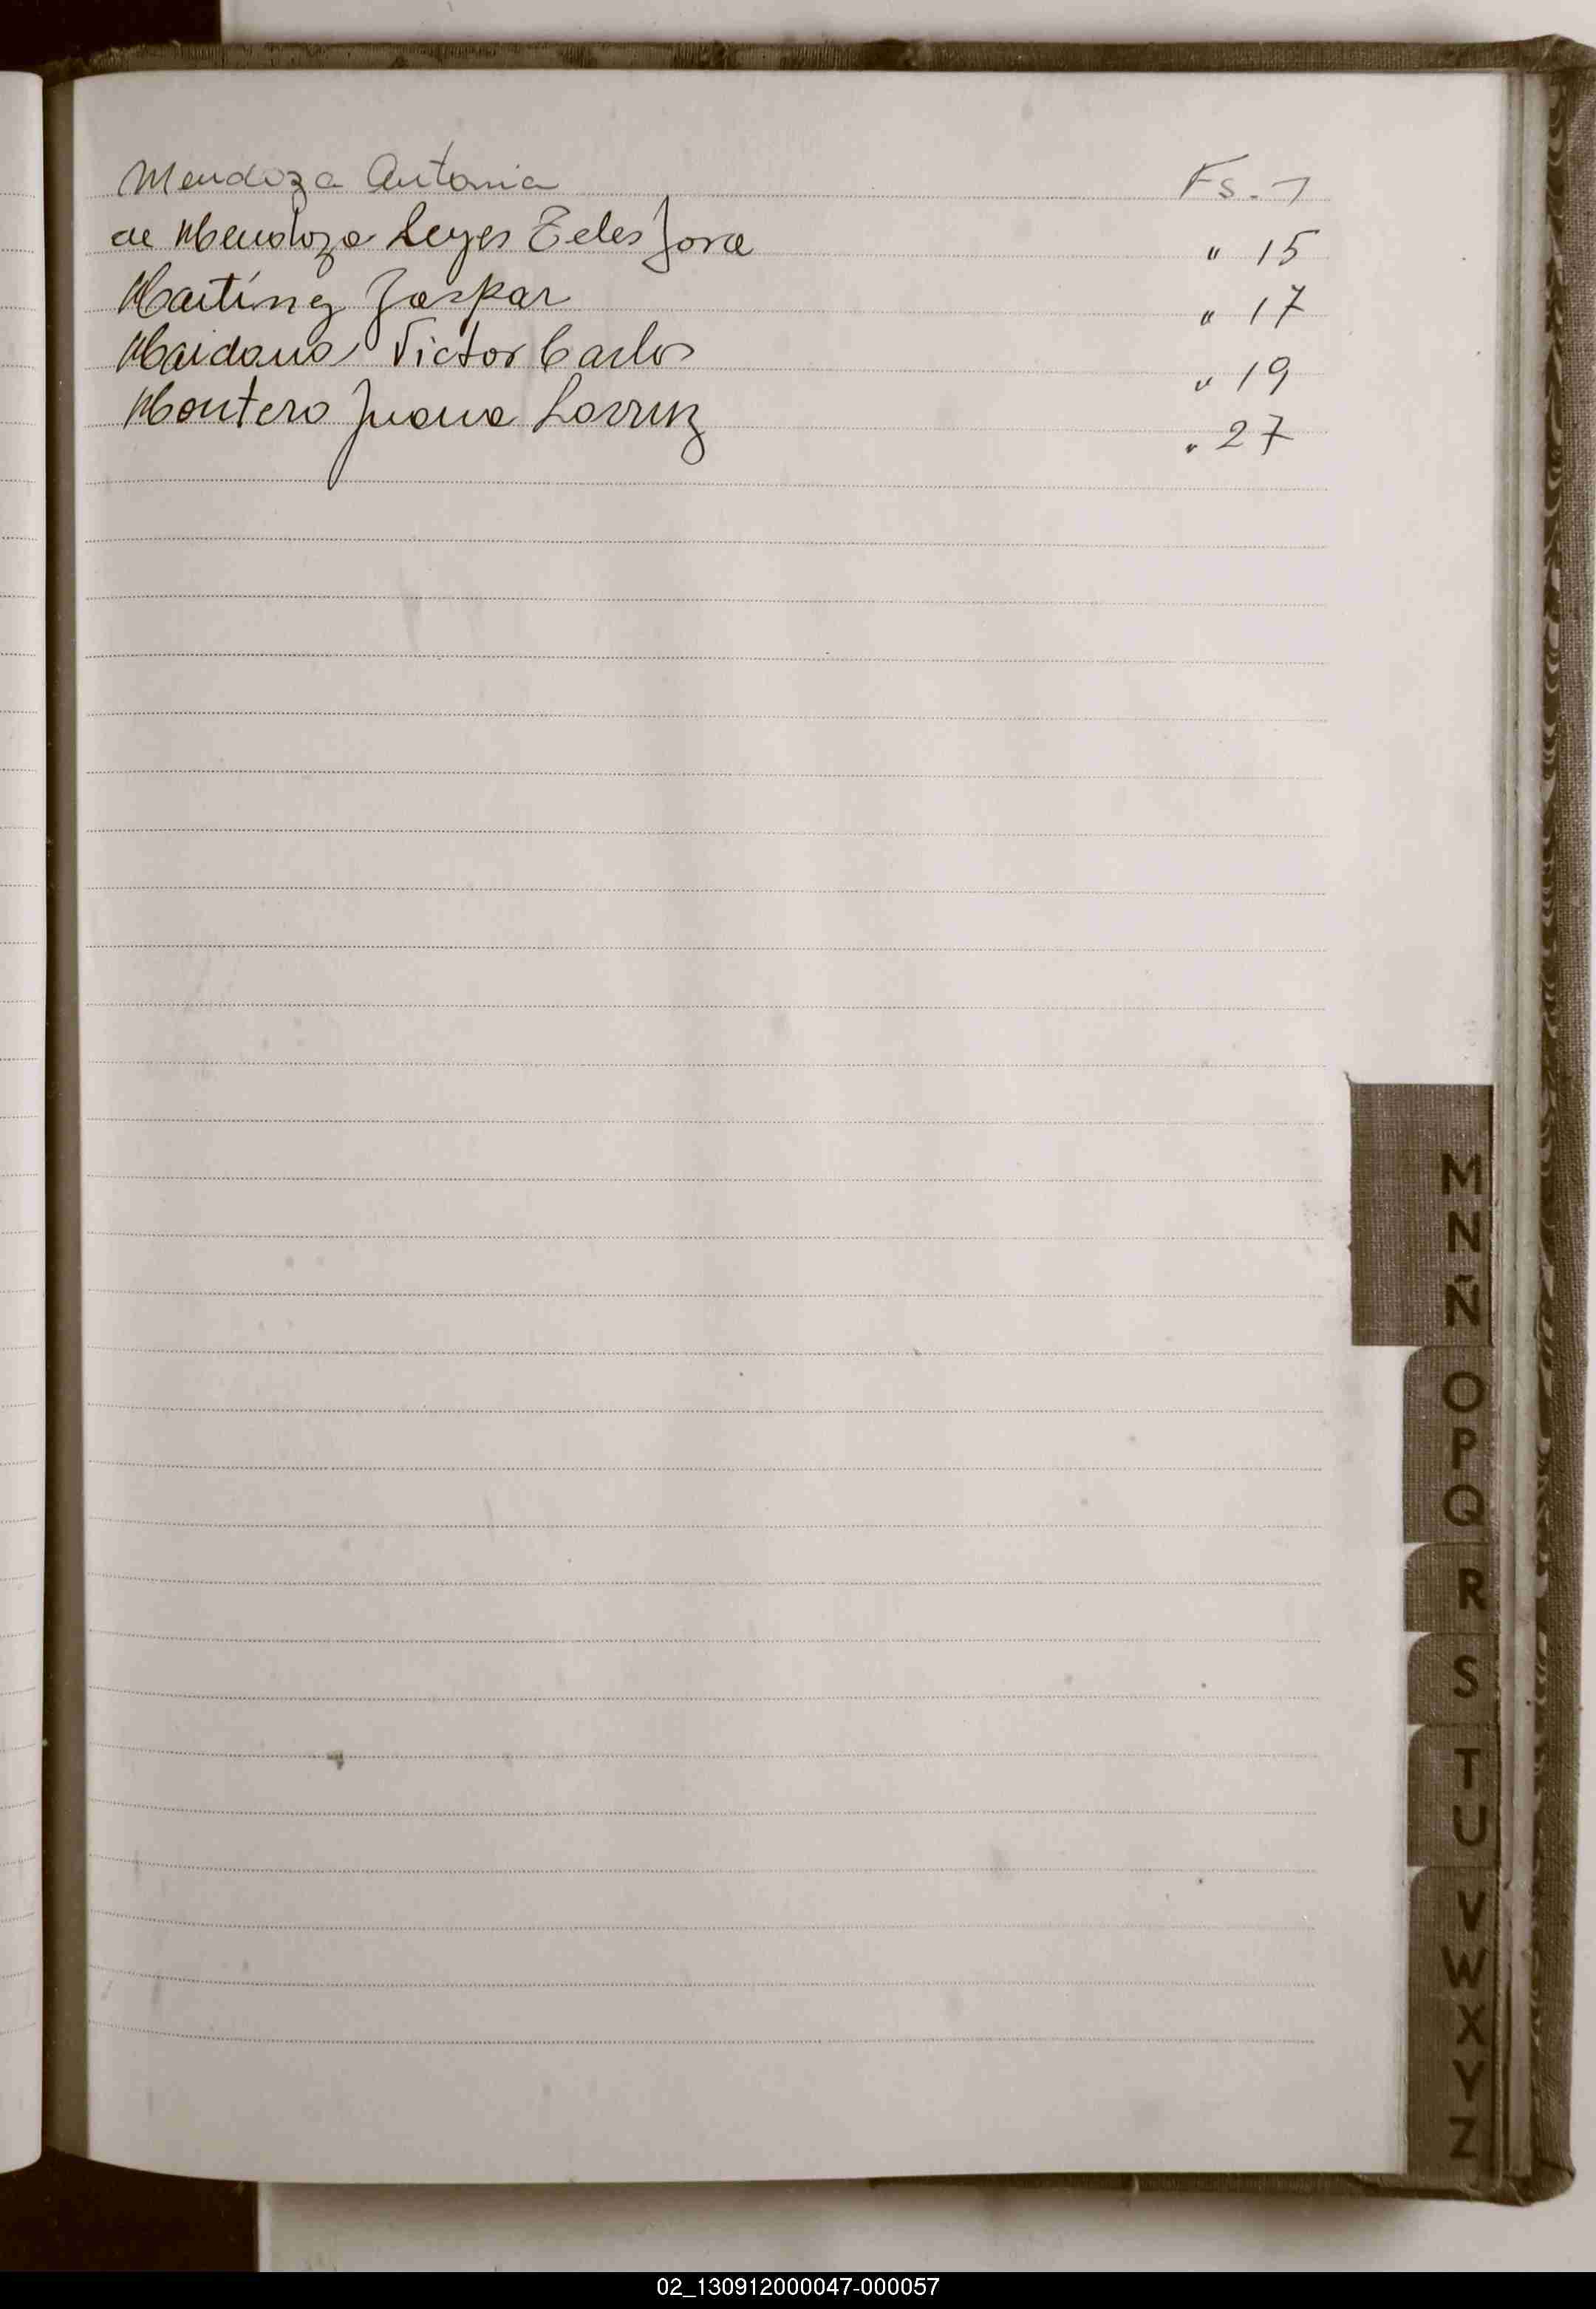 Mendoza Antonia Fs. 7
de Mendoza Leyes Telesfora " 15
Martínez Gaspar " 17
Maidana Victor Carlos " 19
Montero Juana " 27
M
N
Ñ
O
P
Q
R
S
T
U
V
W
X
Y
Z
02_130912000047-000057